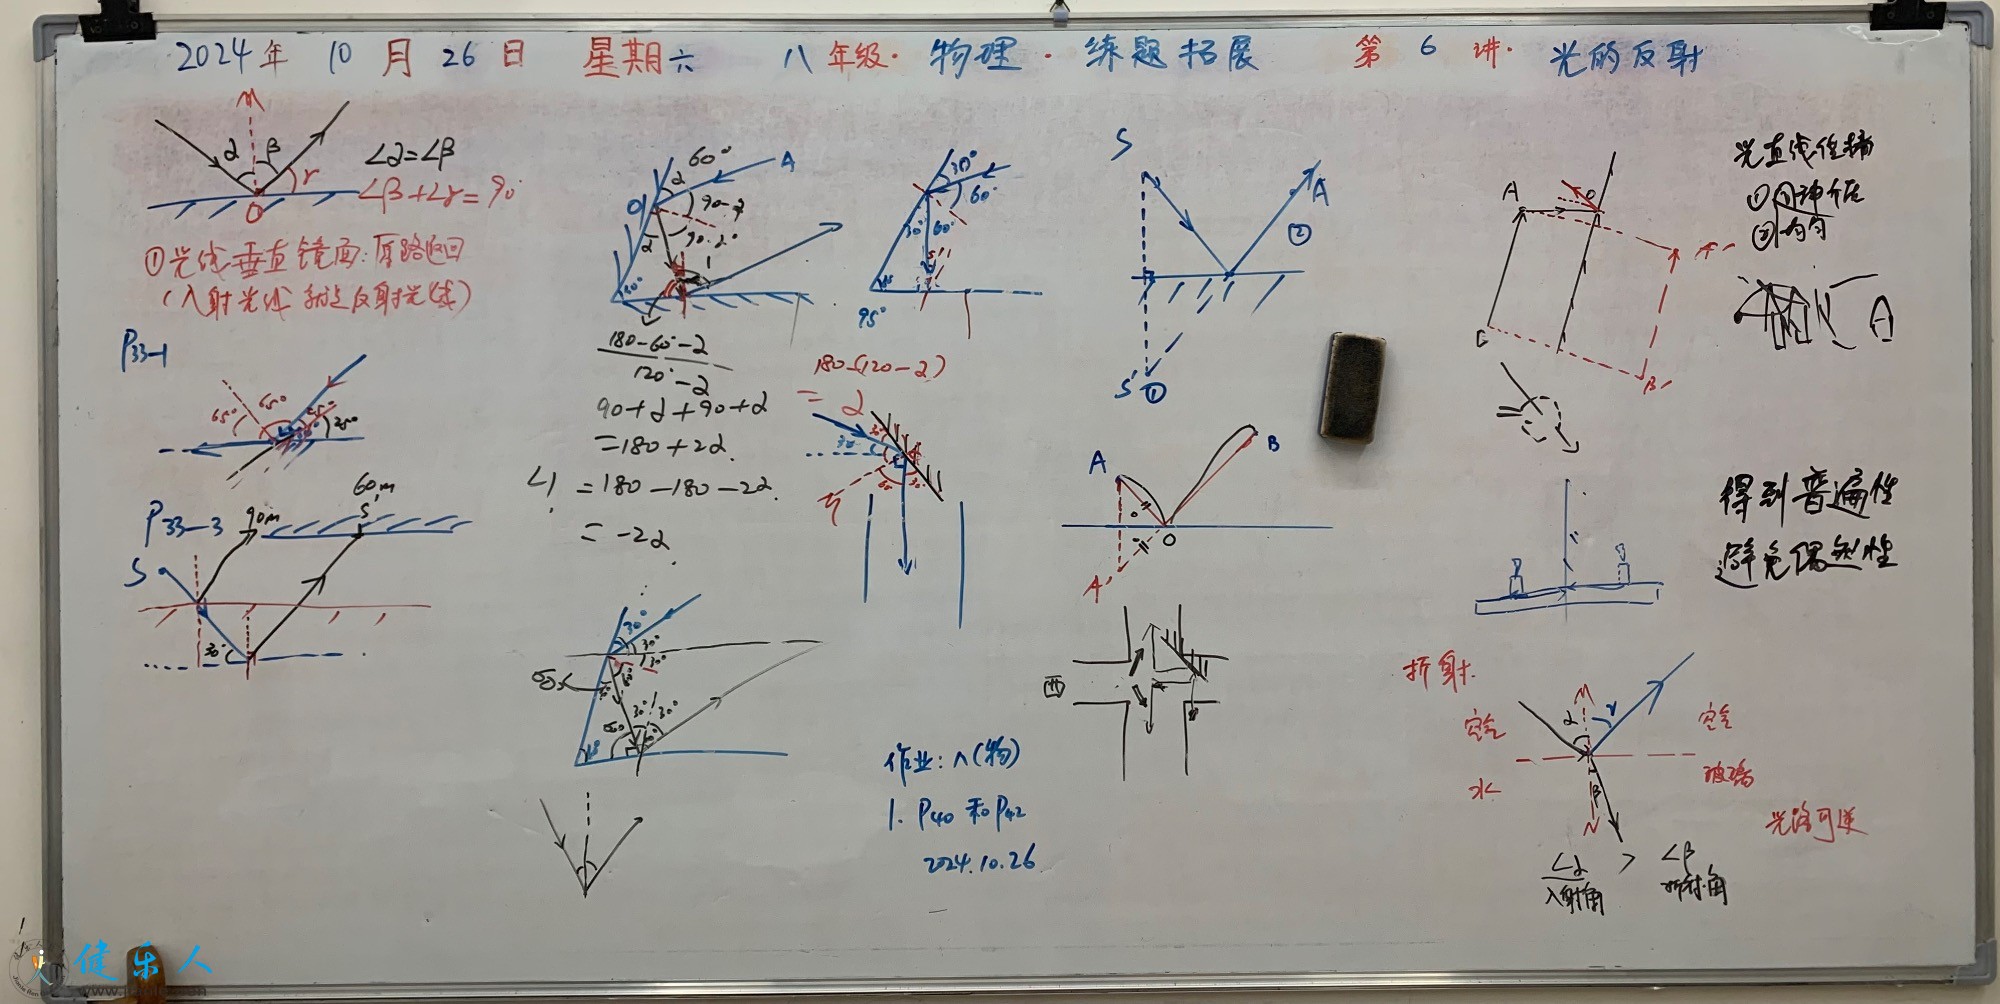 2024年 10 月 26 日 星期六 八年级·物理·练题拓展 第 6 讲· 光的反射
α β
∠α=∠β
γ
O
∠β+∠γ=90°
①光线垂直镜面:原路返回
(入射光线就是反射光线)
P33-1
65° 65° 25° 25°
P33-3
90m
60m
S
S
30°
60°
A
α
O
90-α
α
1
180-60°-α
120°-α
90+α+90+α
=180+2α
∠1 =180-180-2α
=-2α
30°
60°
30° 60°
95°
180-(120-α)
=α
30°
30°
30° 30°
30° 30°
S
A
②
S' ①
A
B
O
A'
西
作业:八(物)
1. P40 和 P42
2024.10.26
A
O
A'
B'
光直线传播
①同种介质
②均匀
A
得到普遍性
避免偶然性
折射
空气
水
α γ
β
N
空气
玻璃
光路可逆
∠α > ∠β
入射角 折射角
健乐人